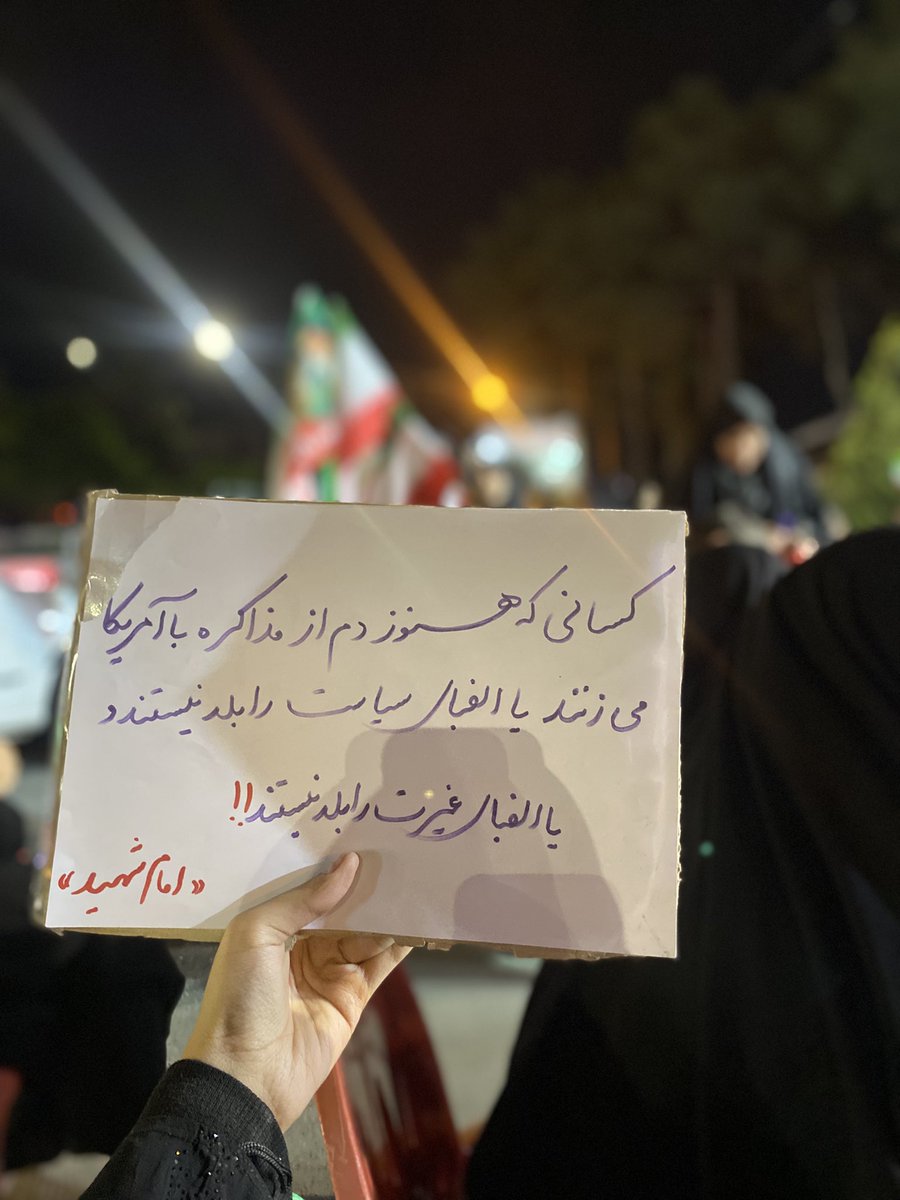 کسانی که هنوز دم از مذاکره با آمریکا
می زنند یا الفبای سیاست را بلد نیستند و
یا الفبای غیرت را بلد نیستند!!
«امام شهید»